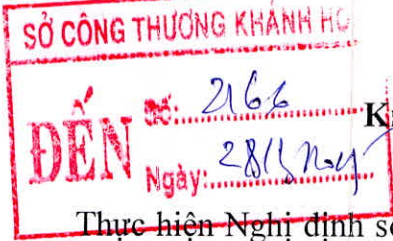 SỞ CÔNG THƯƠNG KHÁNH HO
ĐẾN
Số: 2166
Ngày:
Thực hiện Nghị định số